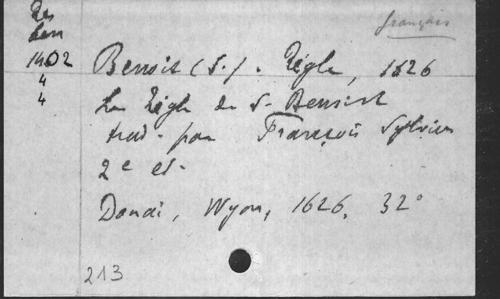 français
Res
1402
4
4
Benoit (S.). Règle, 1626
La Règle de S. Benoist
trad. par François Sylvius
2e ed.
Douai, Wyon, 1626, 32°
213